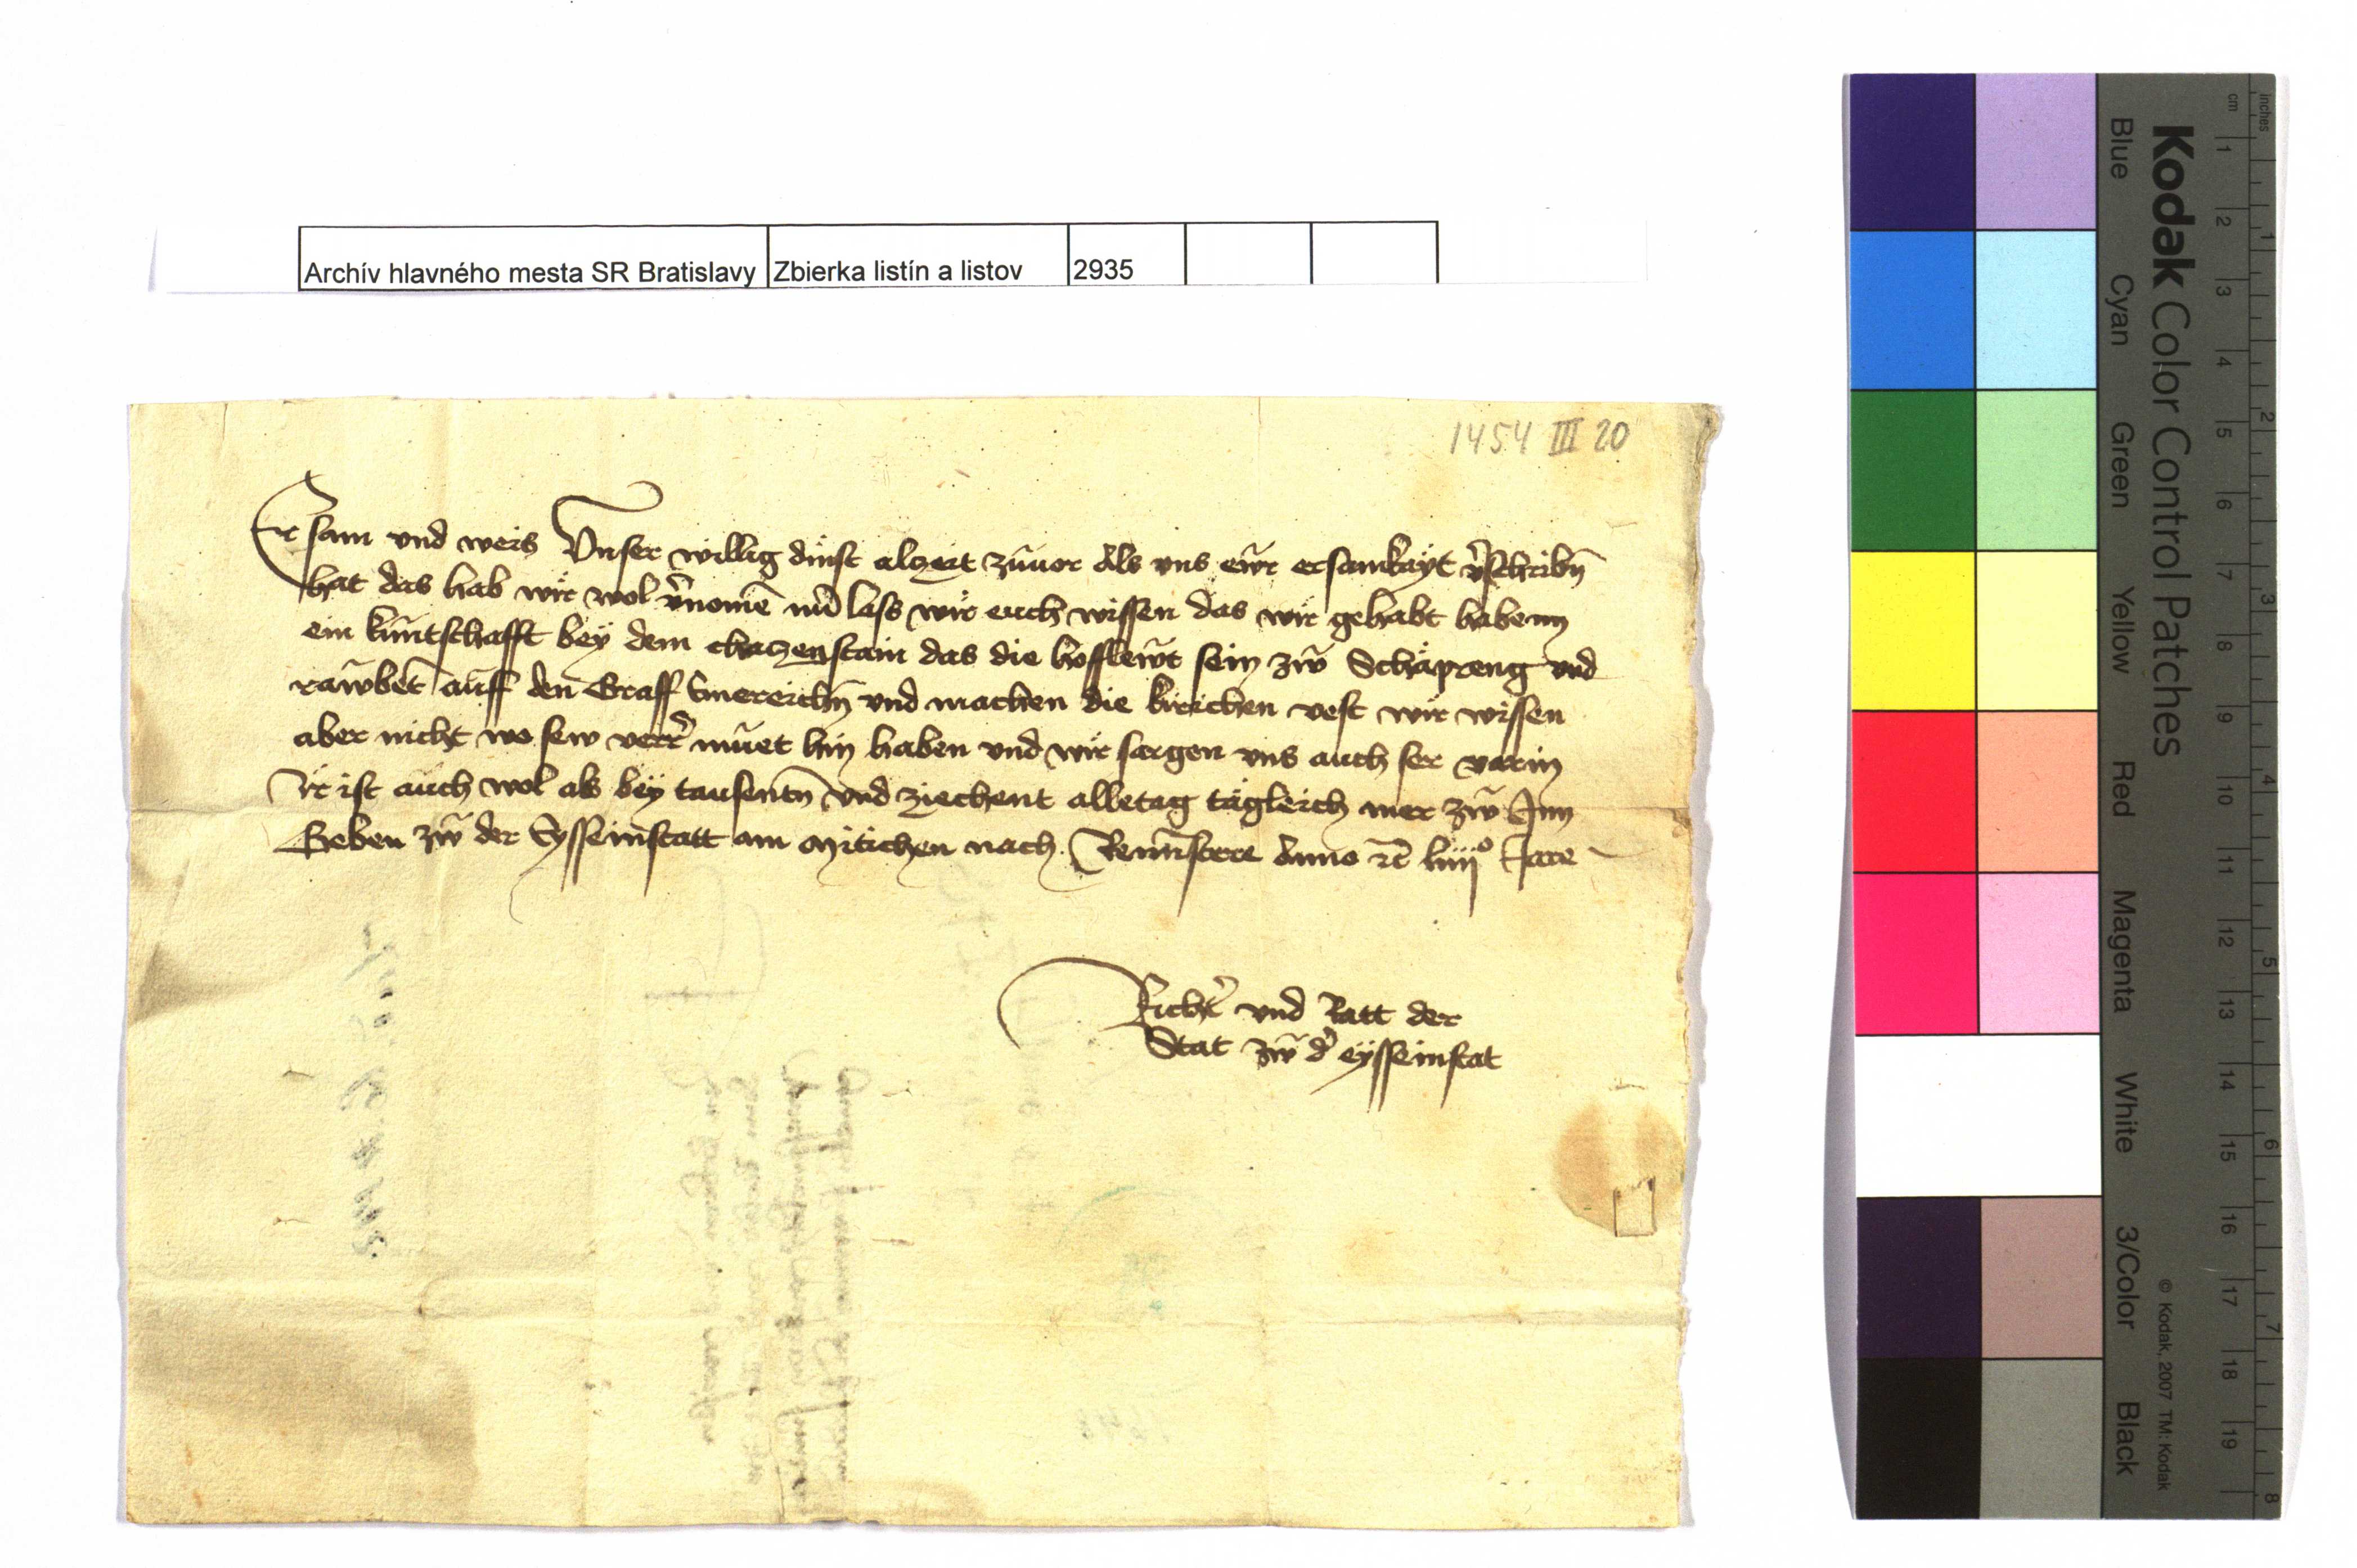 Archív hlavného mesta SR Bratislavy Zbierka listín a listov 2935
1454 III 20
Ersam vnd weis Vnser willig dinst alczeit zuuor Als vns ewr ersamkayt v̄schribn̄
hat das hab wir wol v̄nomē nu lass wir euch wissen das wir gehabt habenn
ein kuntschafft bey dem chaczenstain das die hofflewt sein zw Schäpreng vnd
rawbet auff den Graff vnd machen die kirichen vest wir wissen
aber nicht wo sew verr̄ muet hin haben vnd wir sargen vns auch ser varin
Ir ist auch wol als bey tausentn̄ vnd ziechent alletag tägleich mer zw Inn
Geben zw der Eysseinstatt am Mitichen nach Reminiscere Anno ꝛc̄ liiijo Jare
Richt̄ vnd Ratt der
Stat zw d̄ eysseinstat
Kodak Color Control Patches
Blue Cyan Green Yellow Red Magenta White 3/Color Black
© Kodak, 2007 TM: Kodak
cm 1 2 3 4 5 6 7 8 9 10 11 12 13 14 15 16 17 18 19
inches 1 2 3 4 5 6 7 8